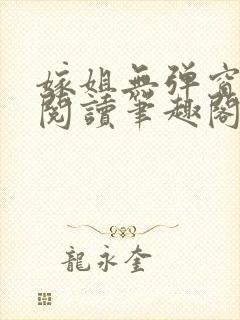 嫁姐無彈窗
閱讀筆趣閣
龍永奎